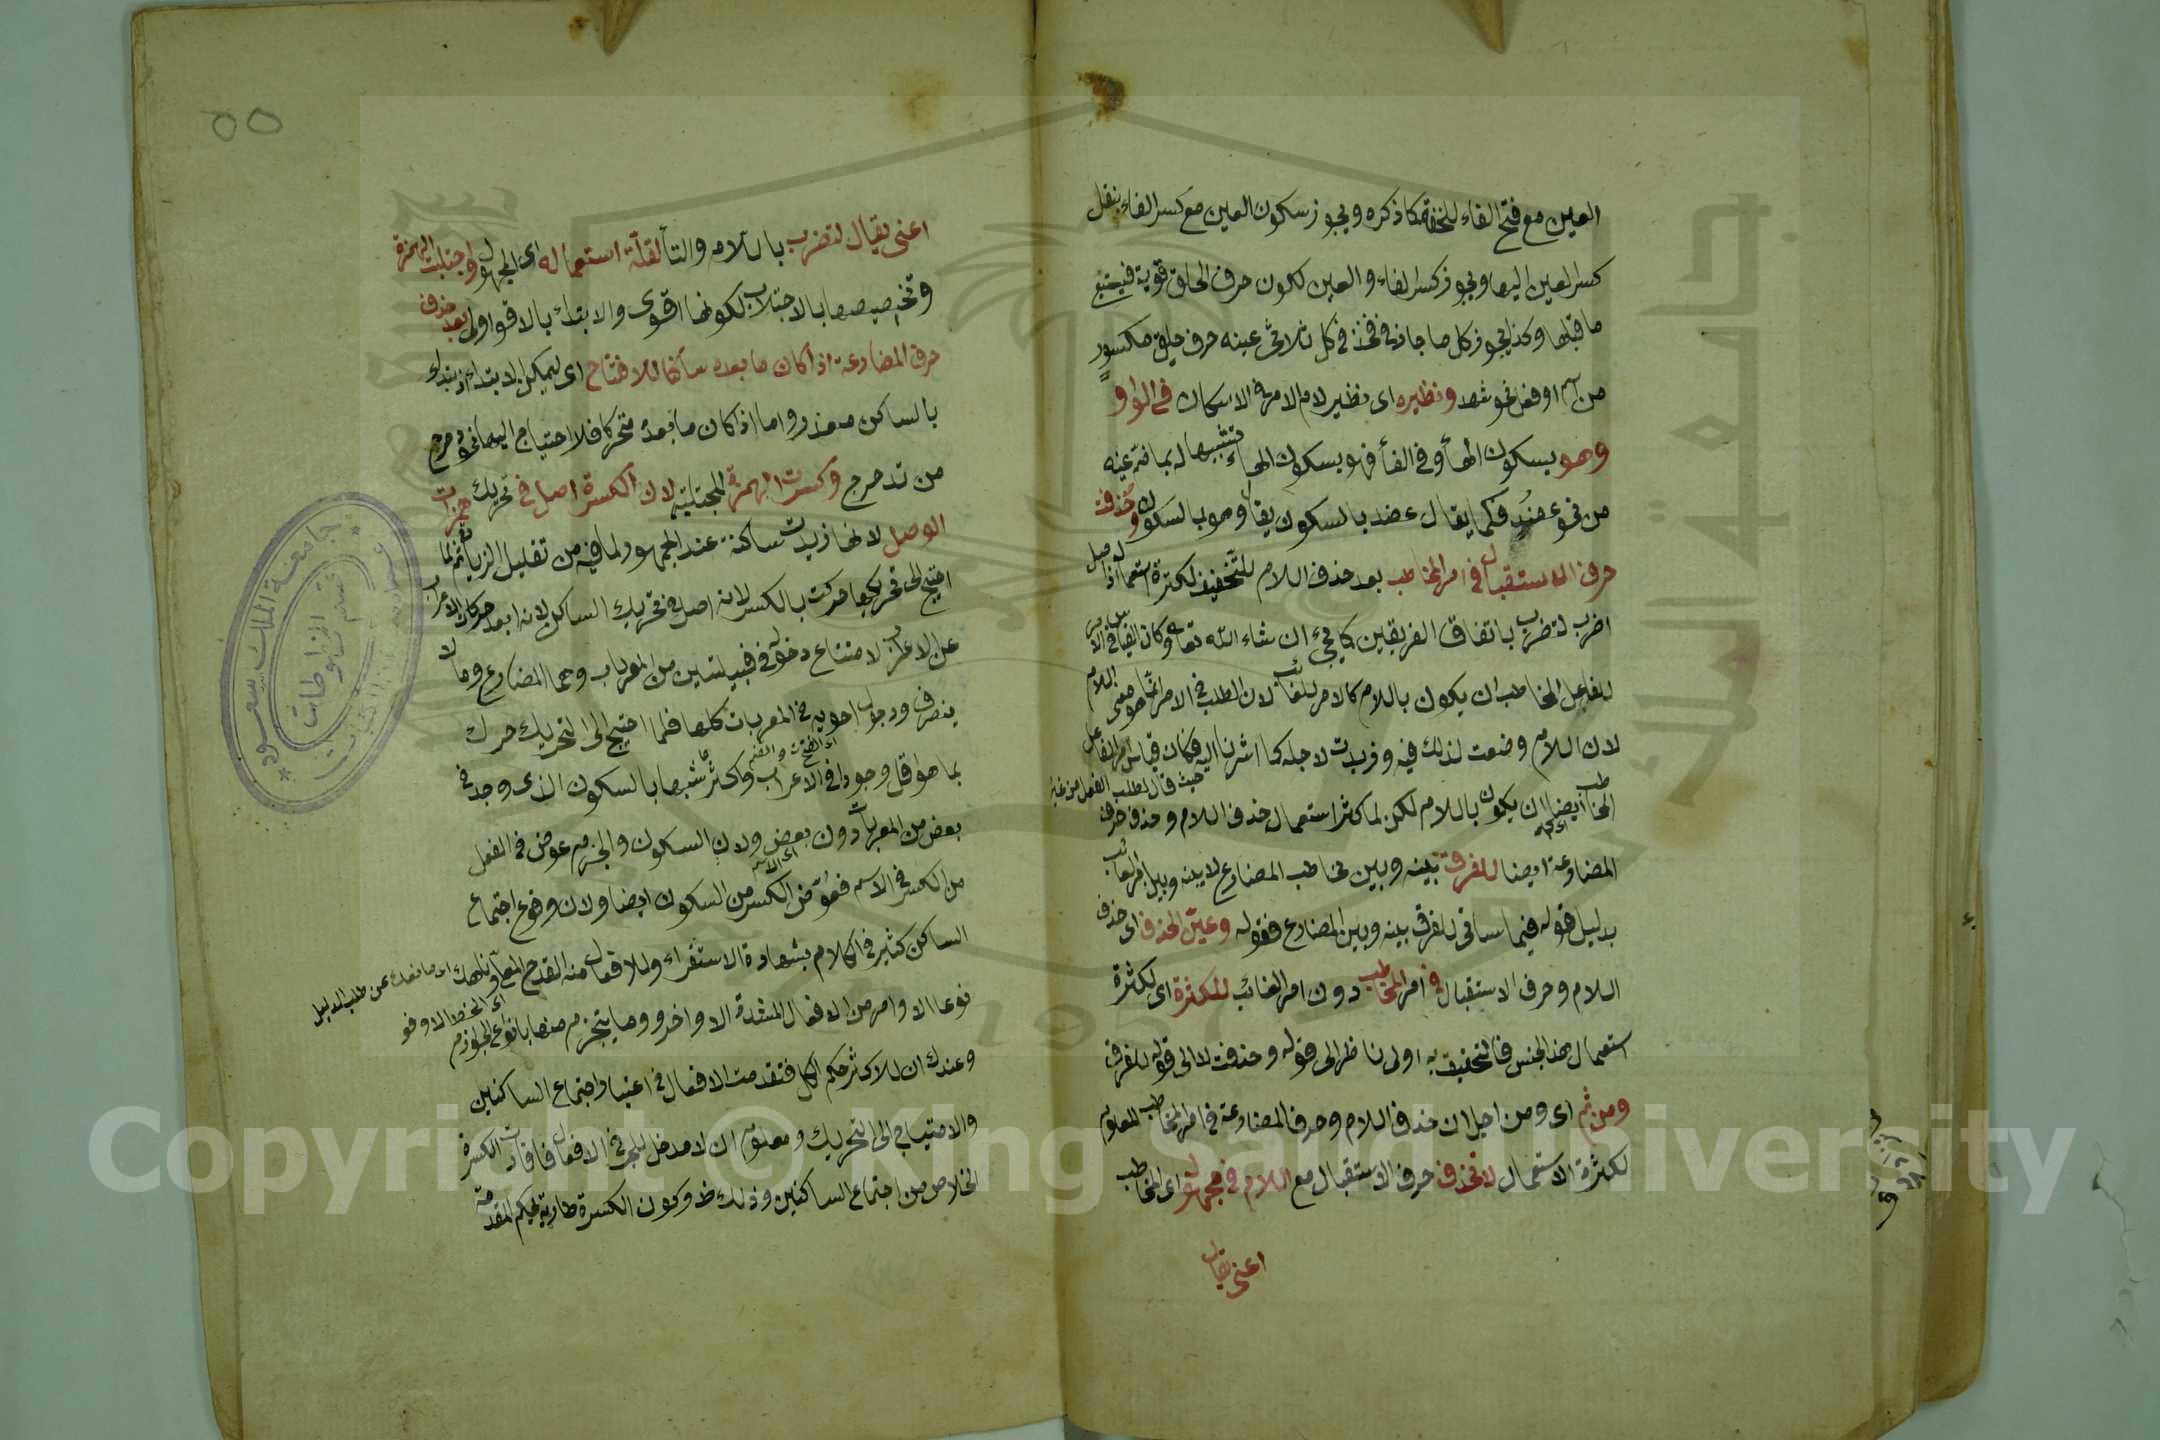 العين مع فتح الفاء للخفة كما ذكره ويجوز سكون العين مع كسر الفاء بنقل
كسر العين اليها ويجوز كسر الفاء والعين لكون حرف الحلق قوية فيتبع
ما قبلها وكذا يجوز كل ما جاز في فخذ في كل ثلاثي عينه حرف حلق مكسور
من اسم او فعل نحو شهد ونظيره اى نظير لام الامر في الاسكان في الواو
وهو بسكون الهاء وفي الفاء فهو بسكون الهاء تشبيها له بما ضم عينه
من نحو عضد فكما يقال عضد بالسكون يقال وهو بالسكون وحذفت
حرف الاستقبال في امر المخاطب بعد حذف اللام للتخفيف لكثرة استعماله اذ اصل
اضرب لتضرب باتفاق الفريقين كما يجئ ان شاء الله تعا وكان القياس في الامر
للفاعل المخاطب ان يكون باللام كالامر للغائب لان الطلب في الامر انما هو معنى اللام
لان اللام وضعت لذلك فيه وزيدت لاجله كما اشرنا اليه فكان قياس امر الفاعل
حيث قال لطلب الفعل من غير
المخاطب ايضا ان يكون باللام لكن لما كثر استعماله حذف اللام وحذف حرف
المضارعة ايضا للفرق بينه وبين مخاطب المضارع لا بينه وبين امر الغائب
بدليل قوله فيما سيأتي للفرق بينه وبين المضارع فقوله وعين الحذف اى حذف
اللام وحرف الاستقبال في امر المخاطب دون امر الغائب للكثرة اى لكثرة
استعمال هذا الجنس فالتخفيف به اولى ناظر الى قوله وحذفت لا الى قوله للفرق
ومن ثم اى ومن اجل ان حذف اللام وحرف المضارعة في امر المخاطب المعلوم
لكثرة الاستعمال لا تحذف حرف الاستقبال مع اللام في مجهوله اى المخاطب
اعنى يقال
٥٥
اعنى يقال لتضرب باللام والتاء لقلة استعماله اى المجهول واجتلبت الهمزة
وتخصيصها بالاجتلاب لكونها اقوى والابتداء بالاقوا اولى بعد حذف
حرف المضارعة اذا كان ما بعده ساكنا للافتتاح اى ليمكن الابتداء اذ ابتداء
بالساكن متعذر واما اذا كان ما بعده متحركا فلا احتياج اليها نحو دحرج
من تدحرج وكسرت الهمزة المجتلبة لان الكسرة اصل في تحريك همزات
الوصل لانها زيدت ساكنة عند الجمهور ولما فيه من تقليل الزيادة ثم لما
احتيج الى تحريكها حركت بالكسر لانه اصل في تحريك الساكن لانه ابعد حركات الاعراب
عن الاعراب لامتناع دخوله في قبيلتين من المعربات وهما المضارع وما لا
ينصرف ودخول اخويه في المعربات كلها فلما احتيج الى التحريك حرك
اى الفتح والضم
بما هو اقل وجودا في الاعراب واكثر شبها بالسكون الذى وجد في
بعض من المعربات دون بعض ولان السكون والجزم عوض في الفعل
من الكسر في الاسم فعوض الكسر من السكون ايضا ولان وقوع اجتماع
الساكن كثير في الكلام بشهادة الاستقراء وللافعال منه القدح المعلى
نوعا الاوامر من الافعال المشددة الاواخر وما ينجزم منها بانواع الجوازم
وعندك ان للاكثر حكم الكل فتقدمت الافعال في اعتبار اجتماع الساكنين
والاحتياج الى التحريك ومعلوم ان لا مدخل للجر في الافعال فافادت الكسرة
الخلاص من اجتماع الساكنين وذلك ظ وكون الكسرة طارية بحكم المقدمة
جامعة الملك سعود
قسم المخطوطات
Copyright © King Saud University